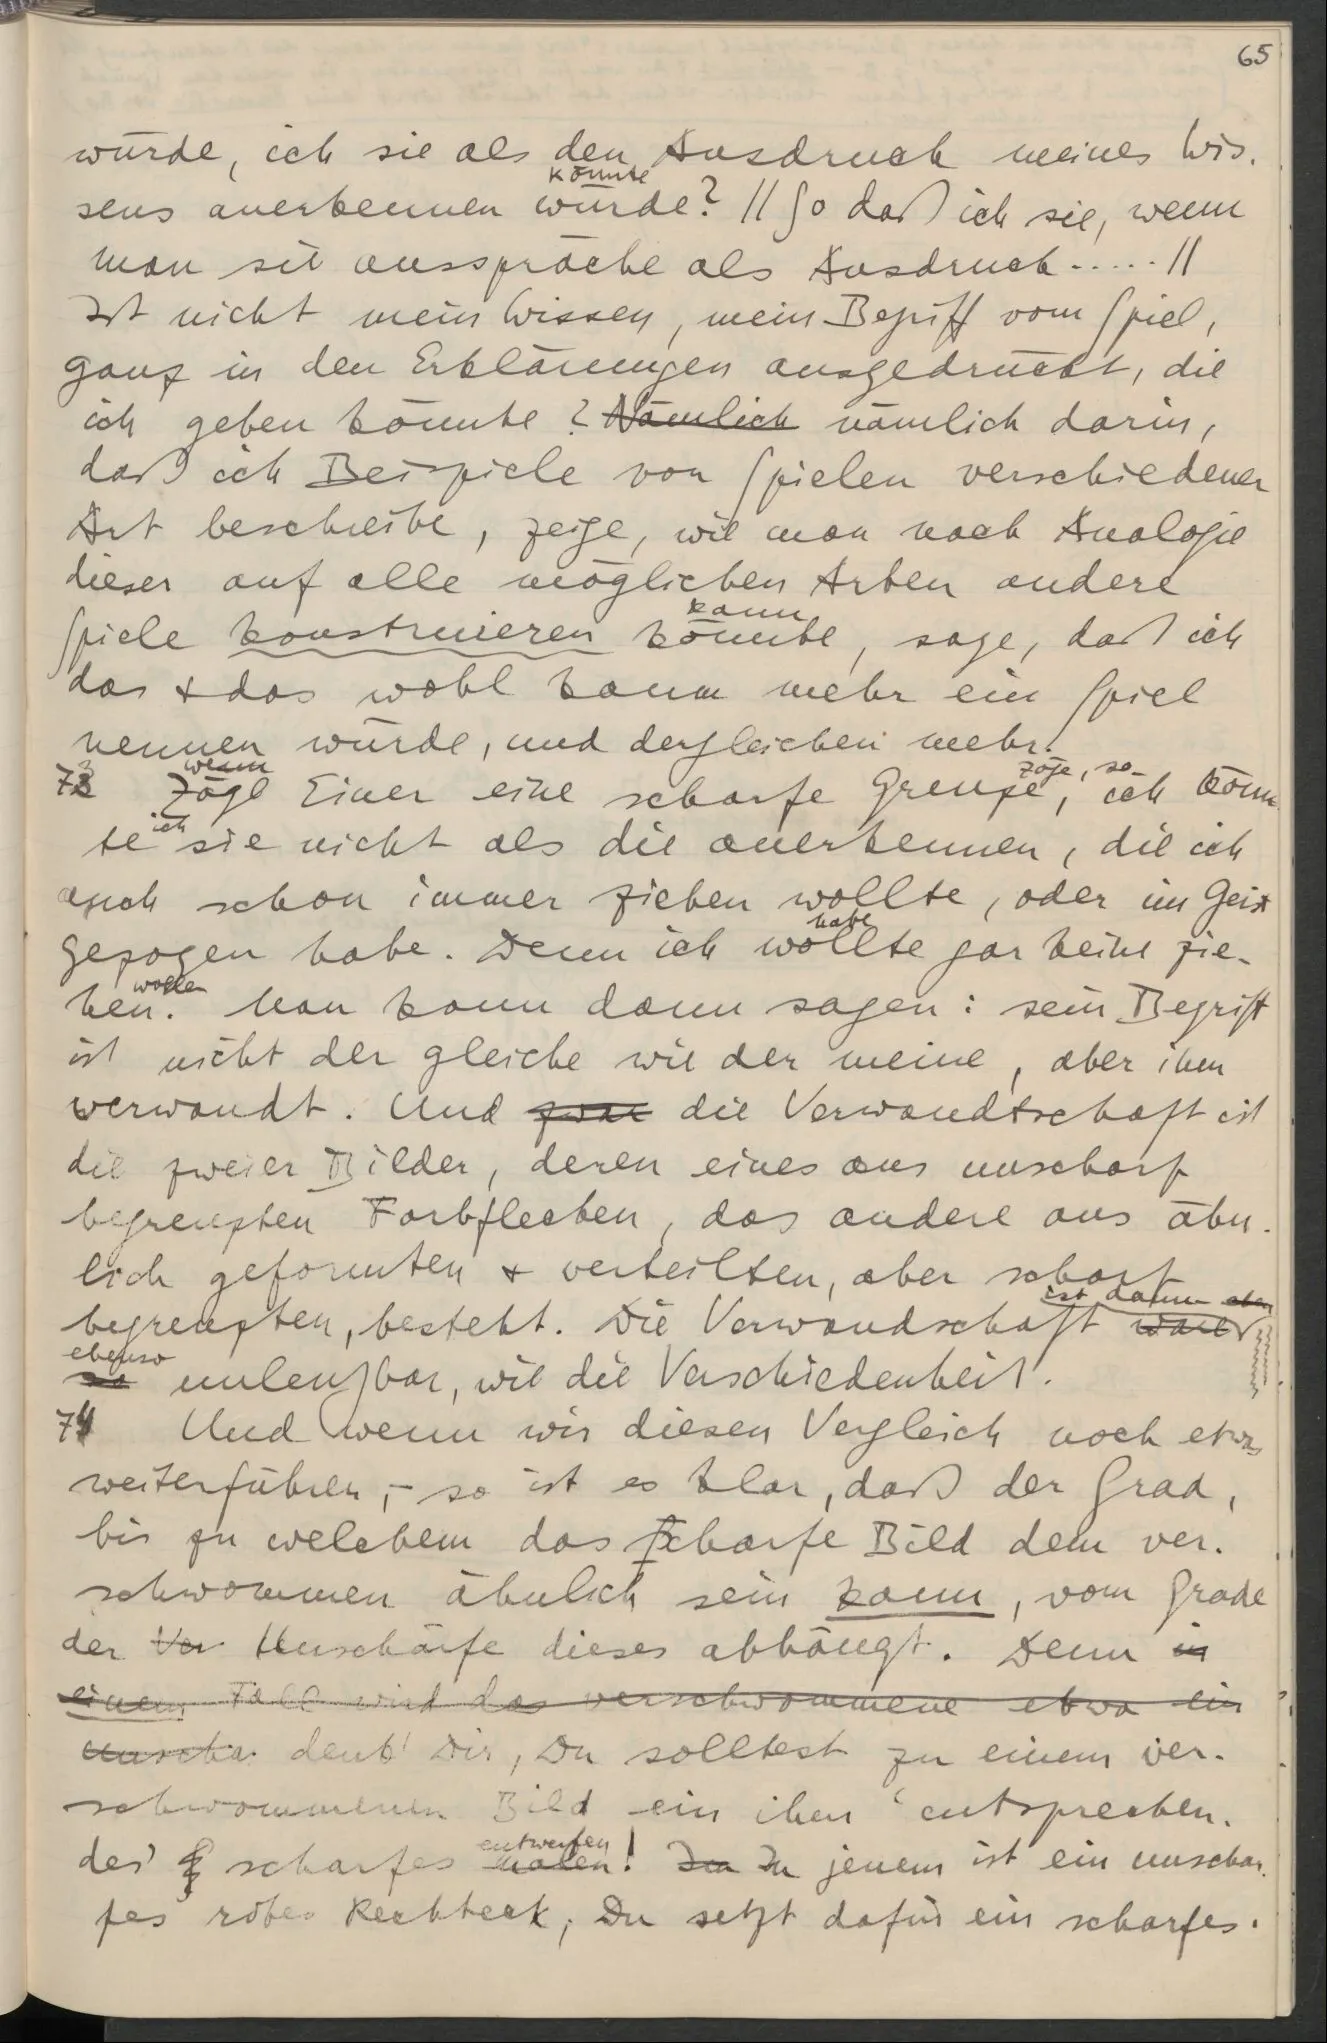 65
würde, ich sie als den Ausdruck meines Wis-
könnte
sens anerkennen würde? // So daß ich sie, wenn
man sie ausspräche als Ausdruck ..... //
Ist nicht mein Wissen, mein Begriff vom Spiel,
ganz in den Erklärungen ausgedrückt, die
ich geben könnte? Nämlich nämlich darin,
daß ich Beispiele von Spielen verschiedener
Art beschreibe, zeige, wie man nach Analogie
dieser auf alle möglichen Arten andere
kann
Spiele konstruieren könnte, sage, daß ich
das & das wohl kaum mehr ein Spiel
nennen würde, und dergleichen mehr.
wenn zöge, so
73 Zöge Einer eine scharfe Grenze, ich könn-
ich
te sie nicht als die anerkennen, die ich
auch schon immer ziehen wollte, oder im Geist
habe
gezogen habe. Denn ich wollte gar keine zie-
wollen
hen. Man kann dann sagen: sein Begriff
ist nicht der gleiche wie der meine, aber ihm
verwandt. Und zwar die Verwandtschaft ist
die zweier Bilder, deren eines aus unscharf
begrenzten Farbflecken, das andere aus ähn-
lich geformten & verteilten, aber scharf
ist dann eben
begrenzten, besteht. Die Verwandschaft wäre
ebenso
so unleugbar, wie die Verschiedenheit.
74 Und wenn wir diesen Vergleich noch etwas
weiterführen, – so ist es klar, daß der Grad,
bis zu welchem das scharfe Bild dem ver-
schwommen ähnlich sein kann, vom Grade
der Ver Unschärfe dieses abhängt. Denn in
einem Fall wird das verschwommene etwa ein
unscha- denk' Dir, Du solltest zu einem ver-
schwommenen Bild ein ihm 'entsprechen-
entwerfen
des' scharfes malen! Im In jenem ist ein unschar-
fes rotes Rechteck, Du setzt dafür ein scharfes.